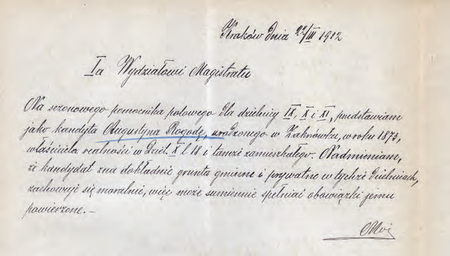 Kraków dnia 29/III 1912
Ia Wydziałowi Magistratu
Na sezonowego pomocnika polowego dla dzielnicy IX, X i XI, przedstawiam
jako kandyta Augustyna Rogodę, urodzonego w Zakrzówku, w roku 1872,
właściciela realności w Dziel. X l. 18. i tamże zamieszkałego. Nadmieniam,
że kandydat zna dokładnie grunta gminne i prywatne w tychże dzielnicach,
zachowuje się moralnie, więc może sumiennie spełniać obowiązki jemu
powierzone. –